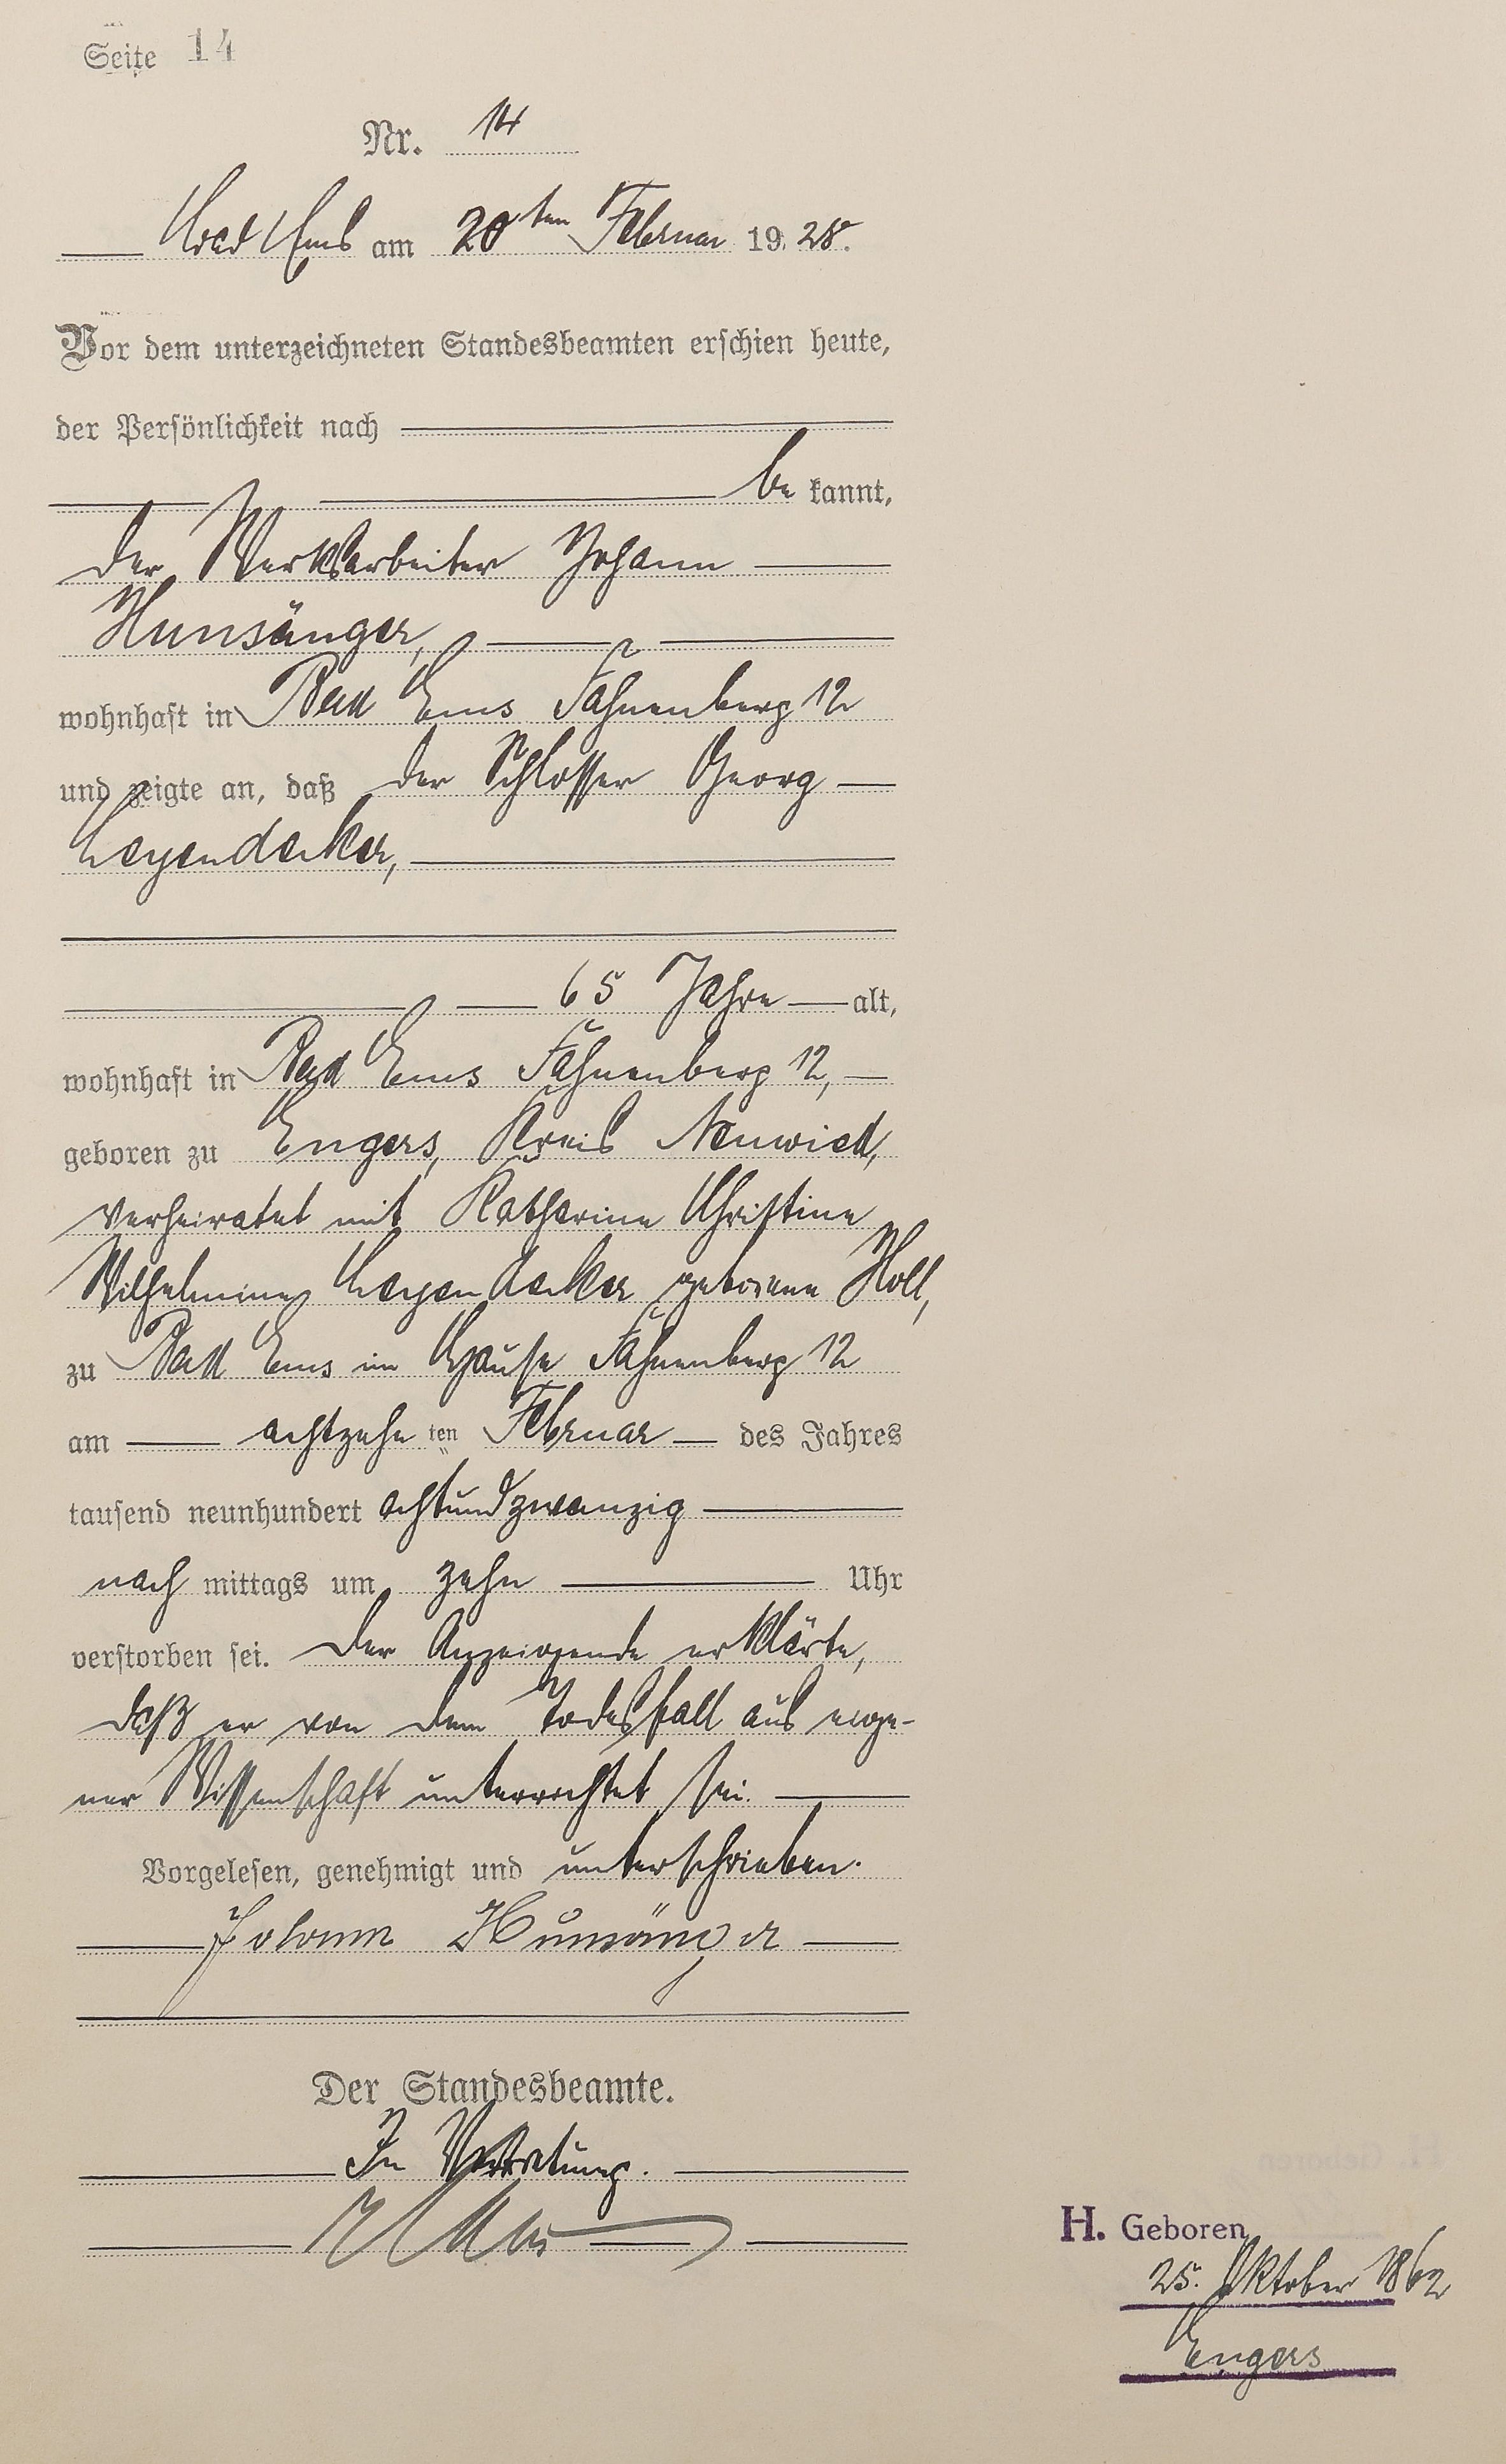 Seite 14
Nr. 14
Bad Ems am 20ten Februar 1928.
Vor dem unterzeichneten Standesbeamten erschien heute,
der Persönlichkeit nach
be kannt,
der Werksarbeiter Johann
Hunsänger,
wohnhaft in Bad Ems Fahnenberg 12
und zeigte an, daß der Schlosser Georg
Leyendecker,
65 Jahre alt,
wohnhaft in Bad Ems Fahnenberg 12,
geboren zu Engers, Kreis Neuwied,
verheiratet mit Katharina Christine
Wilhelmine Leyendecker geborene Holl,
zu Bad Ems im Hause Fahnenberg 12
am achtzehn ten Februar des Jahres
tausend neunhundert achtundzwanzig
nach mittags um zehn Uhr
verstorben sei. Der Anzeigende erklärte,
daß er von dem Todesfall aus eige-
ner Wissenschaft unterrichtet sei.
Vorgelesen, genehmigt und unterschrieben.
Johann Hunsänger
Der Standesbeamte.
In Vertretung.
H. Geboren
25. Oktober 1862
Engers